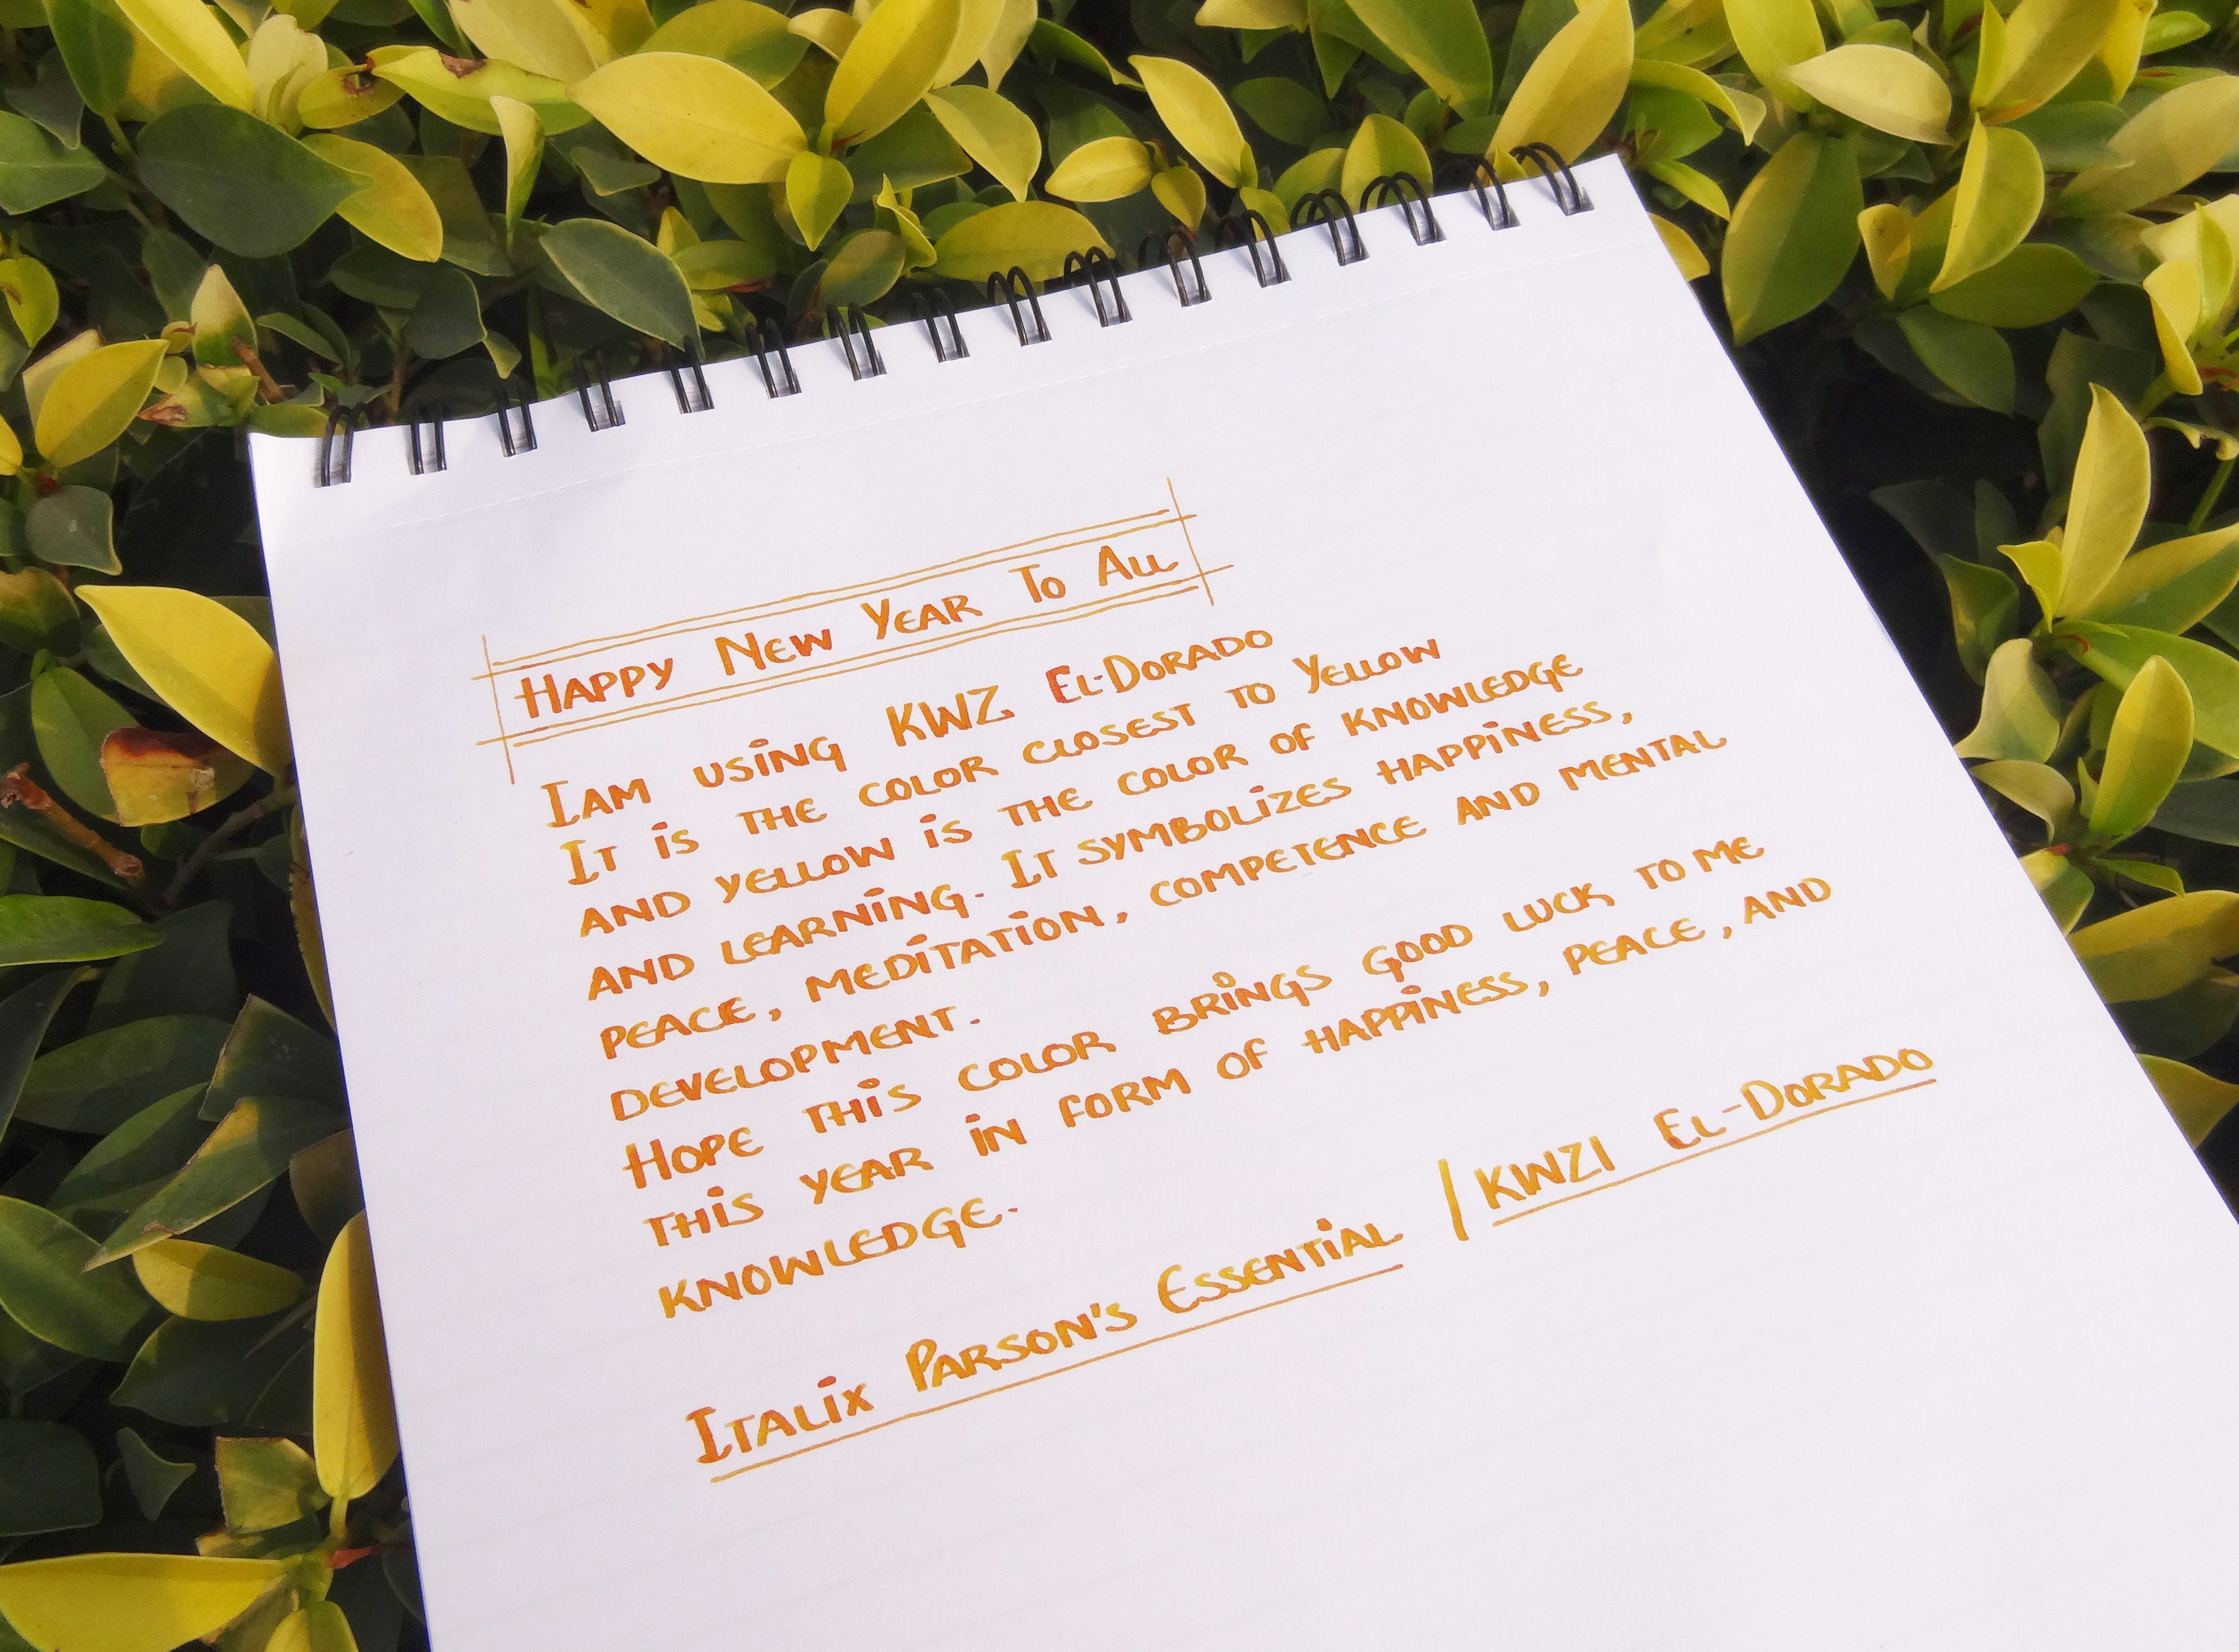 Happy New Year To All
I am using KWZ El-Dorado
It is the color closest to yellow
and yellow is the color of knowledge
and learning. It symbolizes happiness,
peace, meditation, competence and mental
development.
Hope this color brings good luck to me
this year in form of happiness, peace, and
knowledge.
Italix Parson's Essential | KWZI El-Dorado